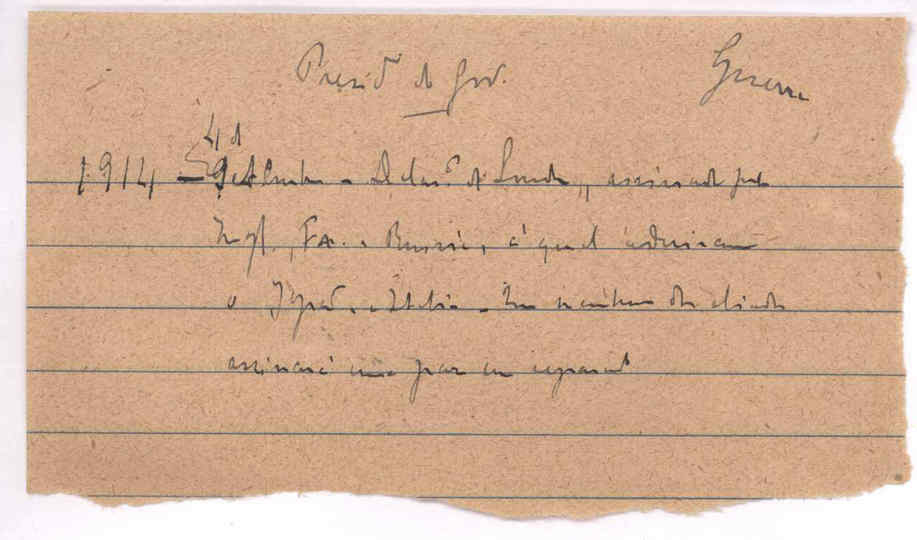 Presid. do Gov. Guerra
4 de
1914 – Setembro – Declar. de Londres, assinada pela
Ingl., Fr. e Russia, á qual aderiram
o Japão e Italia – Que nenhum dos aliados
assinará uma paz em separado